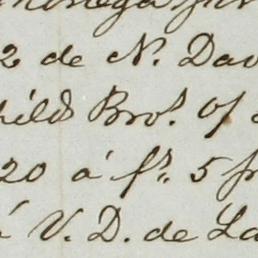 2 de N. Dav
hilds Bros. of
20 á frs. 5 fr
á V. D. de La